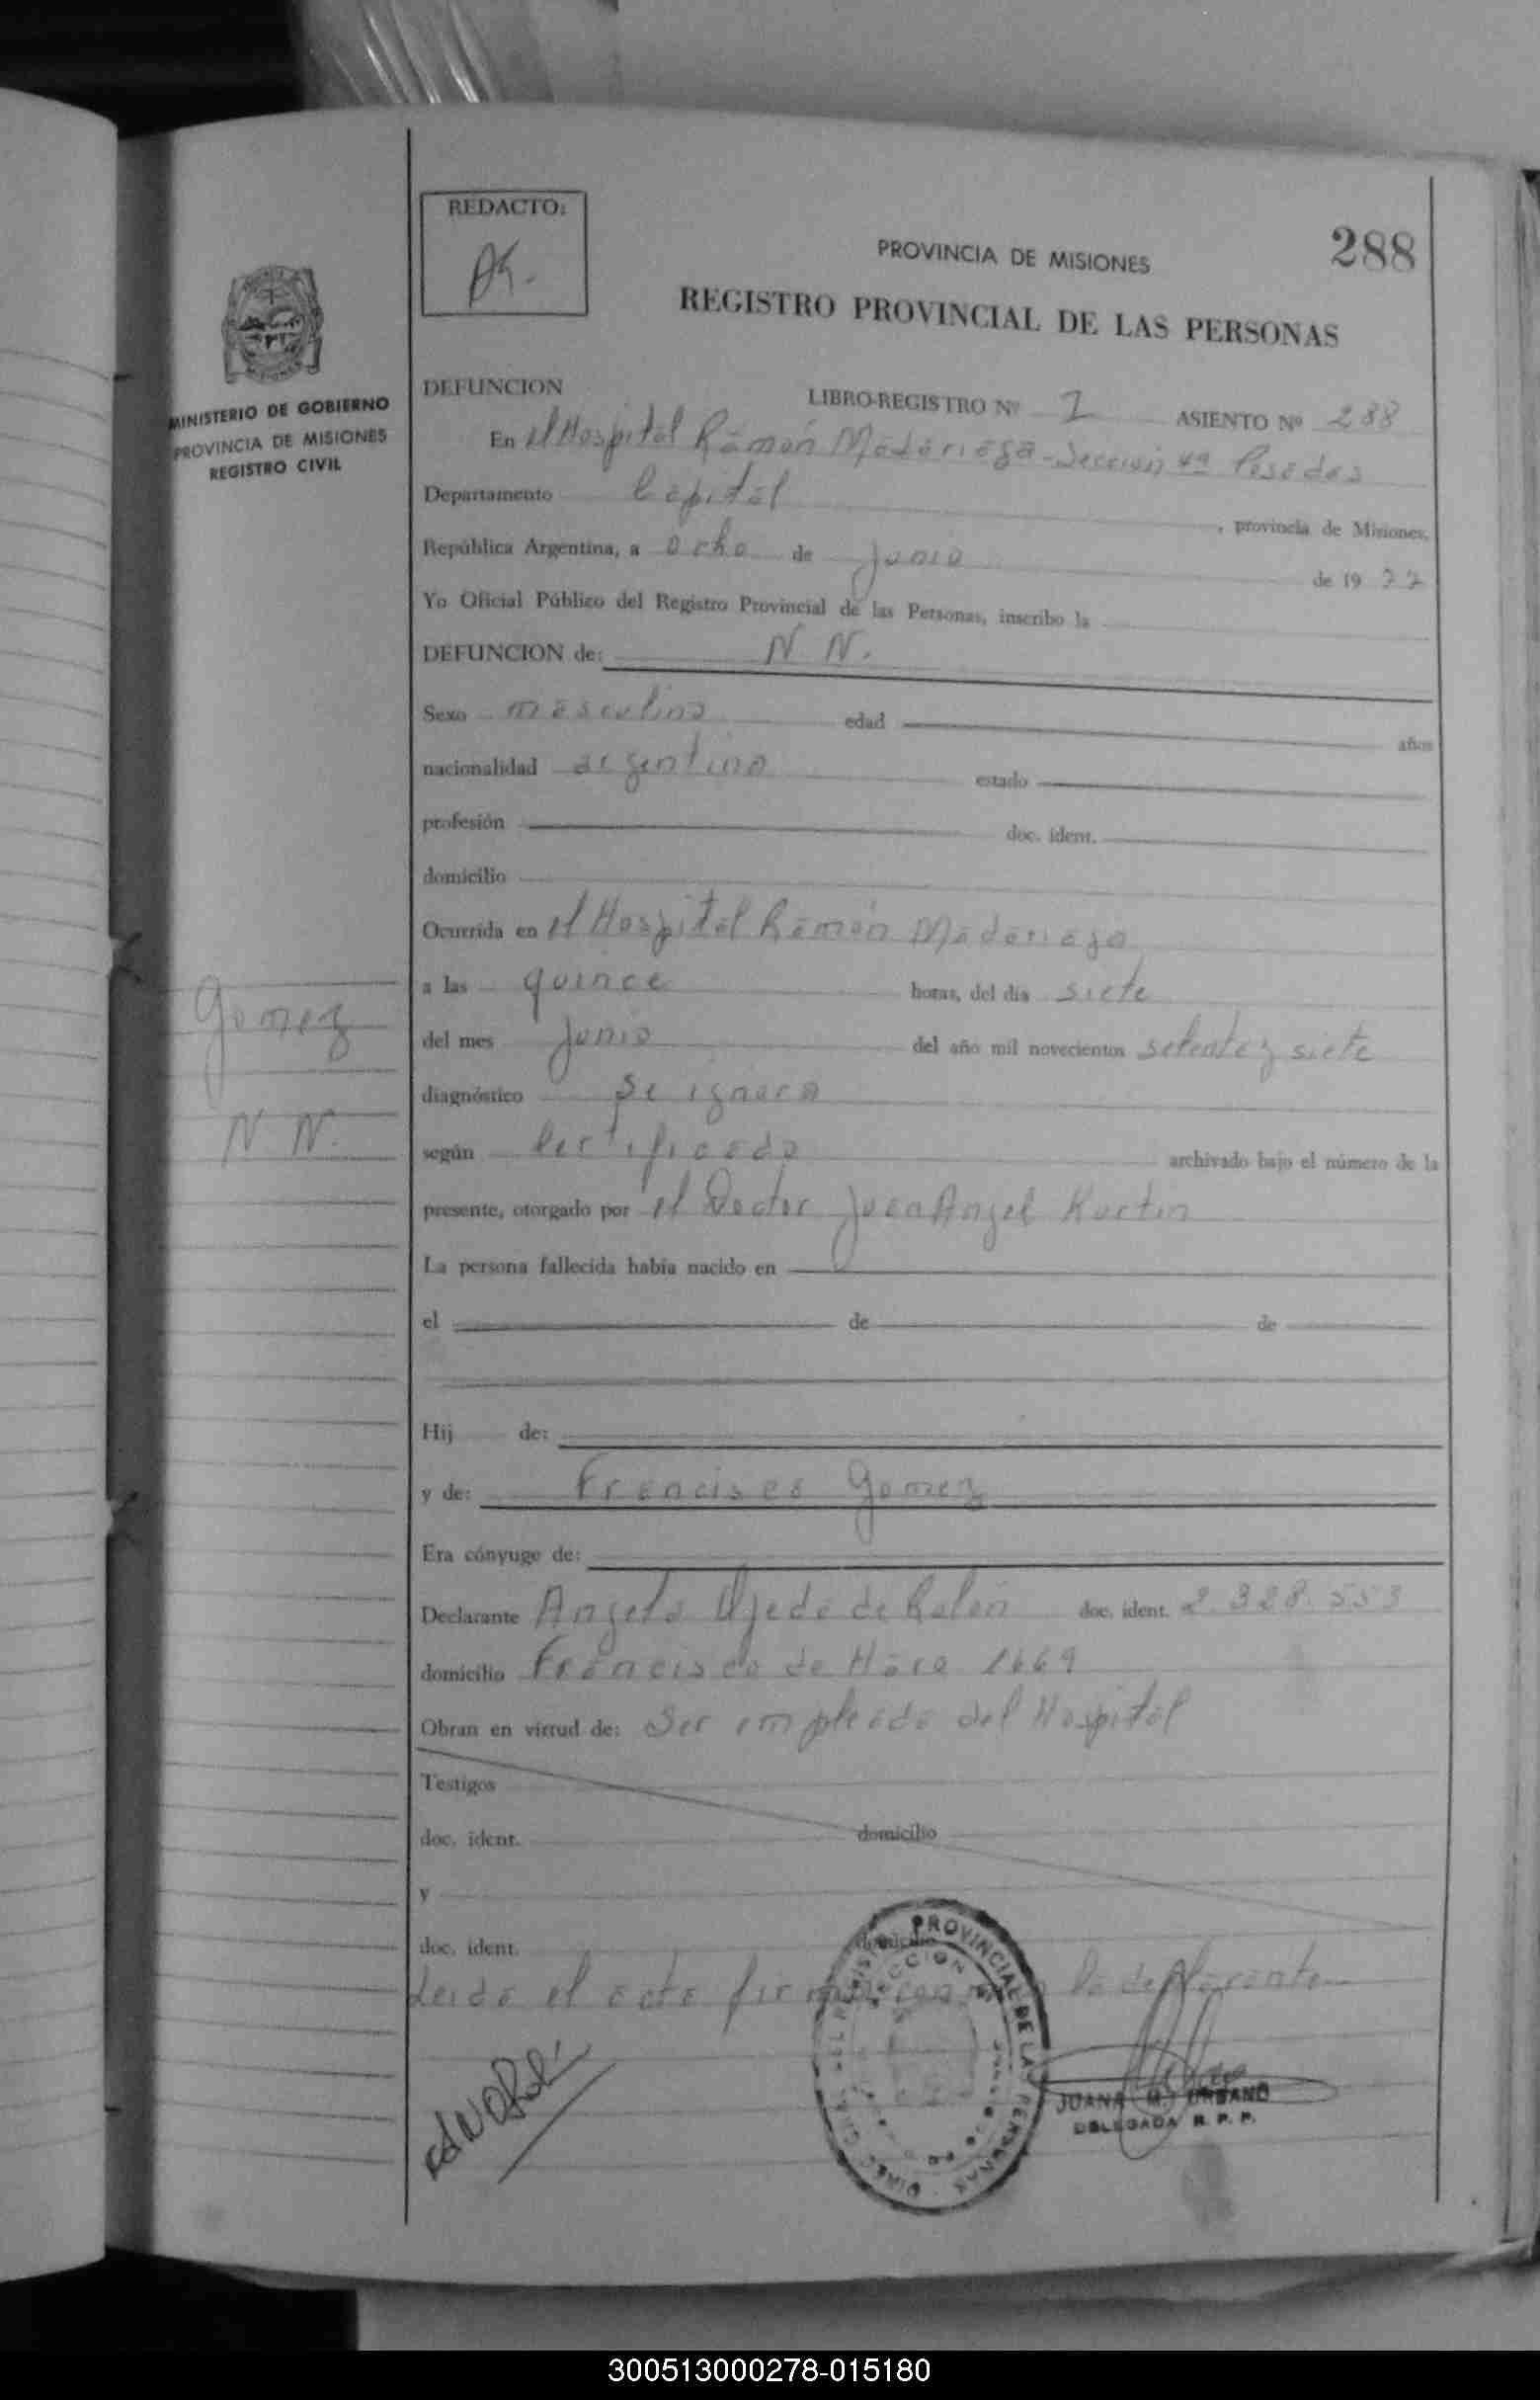 REDACTO:
288
PROVINCIA DE MISIONES
REGISTRO PROVINCIAL DE LAS PERSONAS
MINISTERIO DE GOBIERNO
PROVINCIA DE MISIONES
REGISTRO CIVIL
DEFUNCION LIBRO-REGISTRO Nº 1 ASIENTO Nº 288
En el Hospital Ramón Madariaga - Sección 4ª Posadas
Departamento Capital, provincia de Misiones,
República Argentina, a ocho de junio de 19 77
Yo Oficial Público del Registro Provincial de las Personas, inscribo la
DEFUNCION de: N. N.
Sexo masculino edad años
nacionalidad argentino estado
profesión doc. ident.
domicilio
Ocurrida en el Hospital Ramón Madariaga
a las quince horas, del día siete
del mes junio del año mil novecientos setenta y siete
diagnóstico se ignora
según Certificado archivado bajo el número de la
presente, otorgado por el Doctor Juan Angel Kurtin
La persona fallecida había nacido en
el de de
Hij de:
y de: Francisca Gomez
Era cónyuge de:
Declarante Angela Ojeda de Rolón doc. ident. 2.328.553
domicilio Francisco de Haro 1669
Obran en virtud de: Ser empleada del Hospital
Testigos
doc. ident. domicilio
y
doc. ident. domicilio
Leida el acta firma la declarante
Gomez
N. N.
PROVINCIAL DE LAS PERSONAS
JUANA M. URBANO
DELEGADA R. P. P.
300513000278-015180